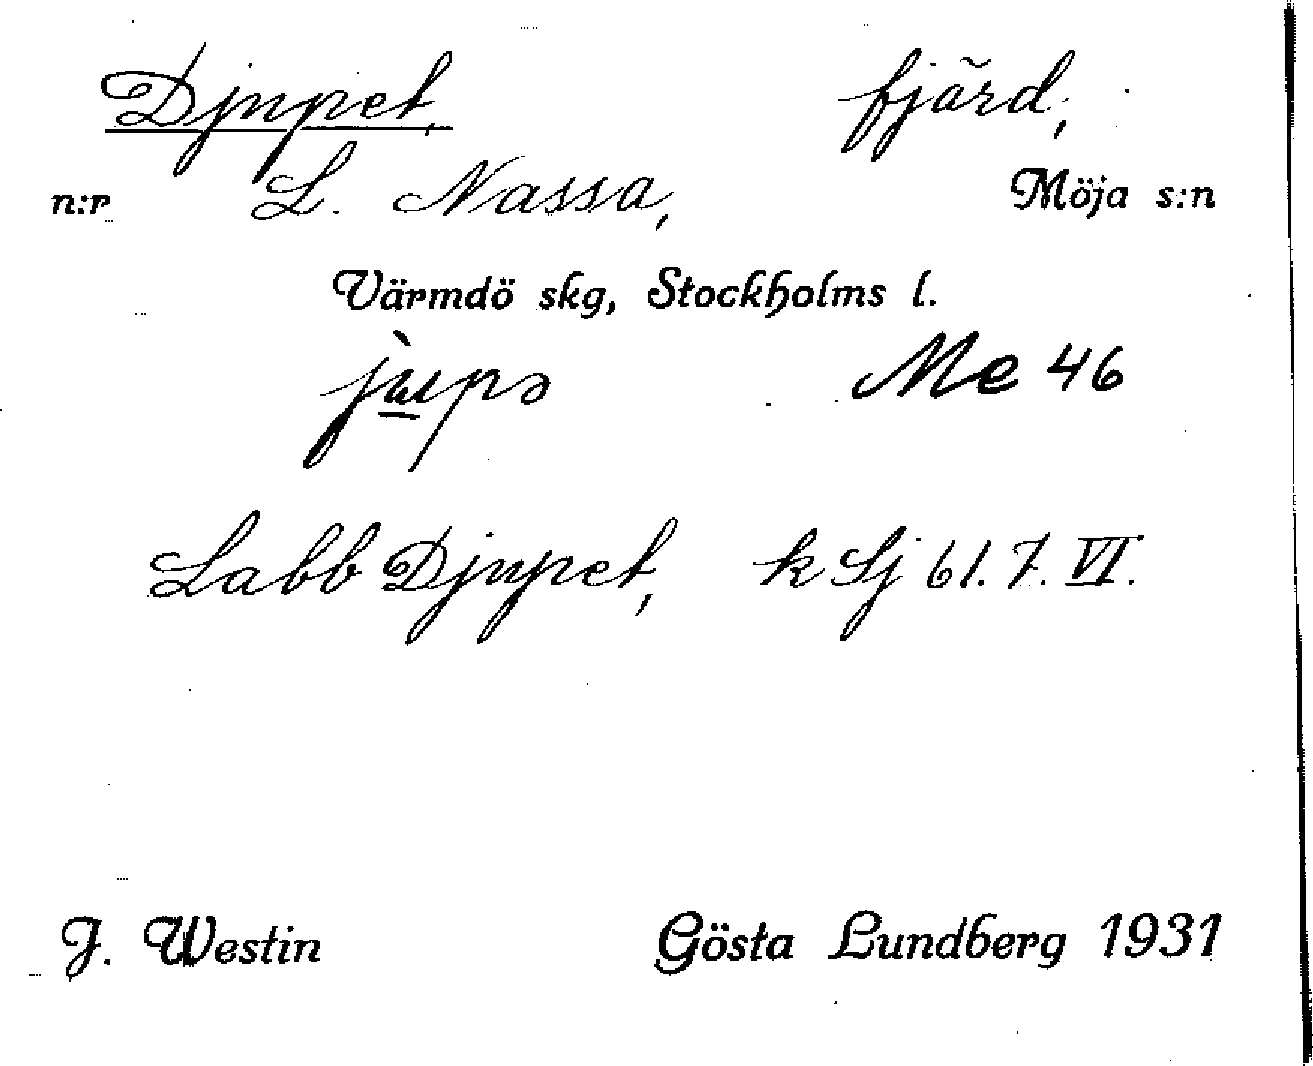 Djupet, fjärd,
n:r L. Nassa, Möja s:n
Värmdö skg, Stockholms l.
Me 46
Labb Djupet, k Sj 61. 7. VI.
J. Westin Gösta Lundberg 1931